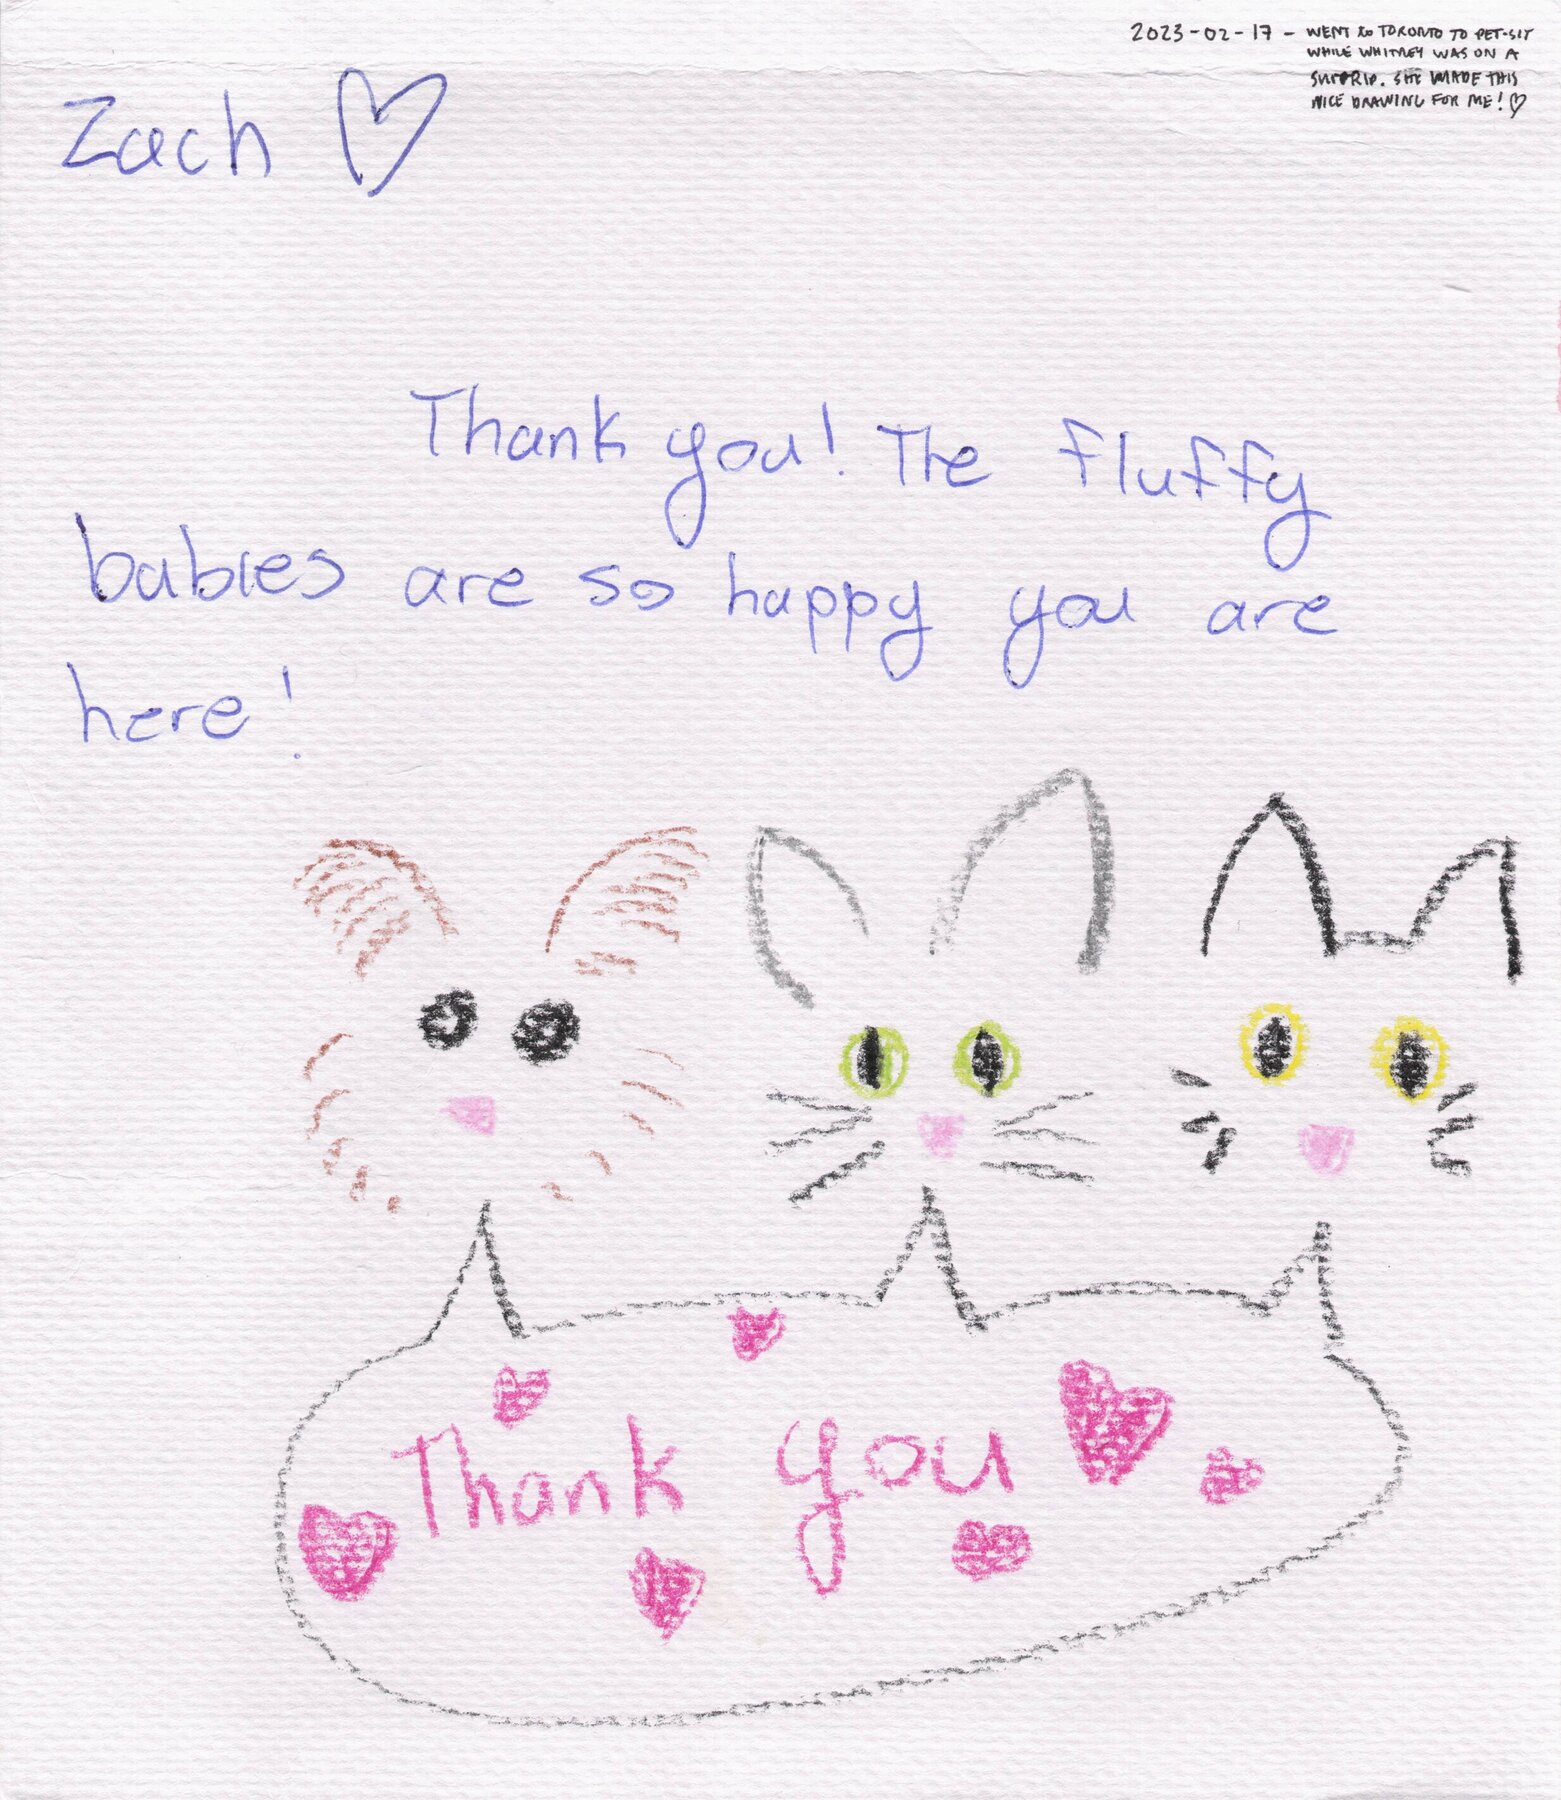 2023-02-17 - WENT to TORONTO TO PET-SIT
WHILE WHITNEY WAS ON A
SHE MADE THIS
NICE DRAWING FOR ME! ♡
Zach ♡
Thank you! The fluffy
babies are so happy you are
here!
Thank you